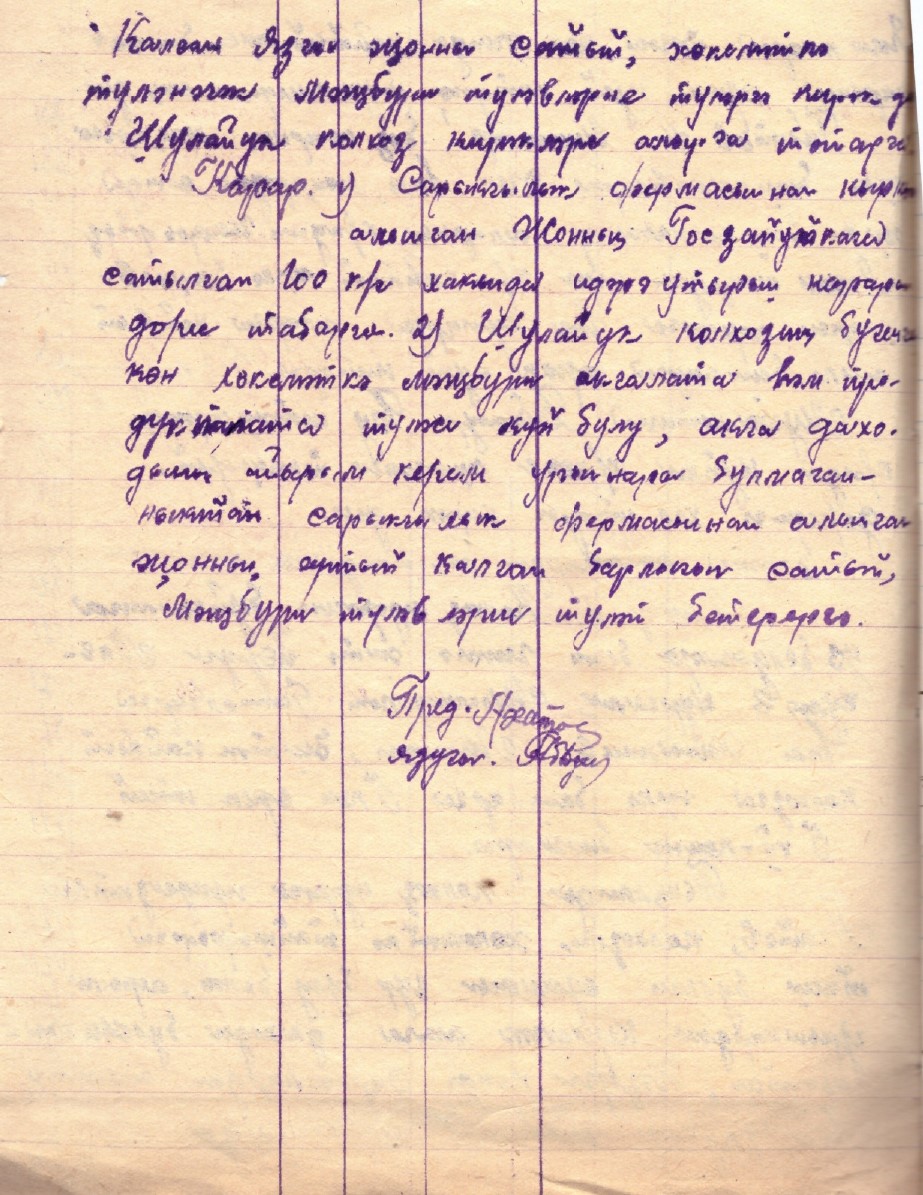 Калган язгы җонны сатып, хөкемәткә
түләнәчәк мәҗбүри түләүләрне түләргә кирәк
Шулайук колхоз кирәкләре алуга тотарга
Карар. 1) Сарыкчылык фермасыннан кырк
алынган Җонның Госзаготкага
сатылган 100 кг хакында идарә утырыш карары
дөрес табарга. 2) Шулайук колхозның бүген
көн хөкемәткә мәҗбүри акчалата һәм про-
дукталата түли куй булу, акча дохо-
дының айырым керем урыннары булмаган-
лыктан сарыкчылык фермасыннан алынган
җонның артып калган барлыгын сатып,
Мәҗбүри түләүләрне түләп бетерергә.
Пред.
Язучы.